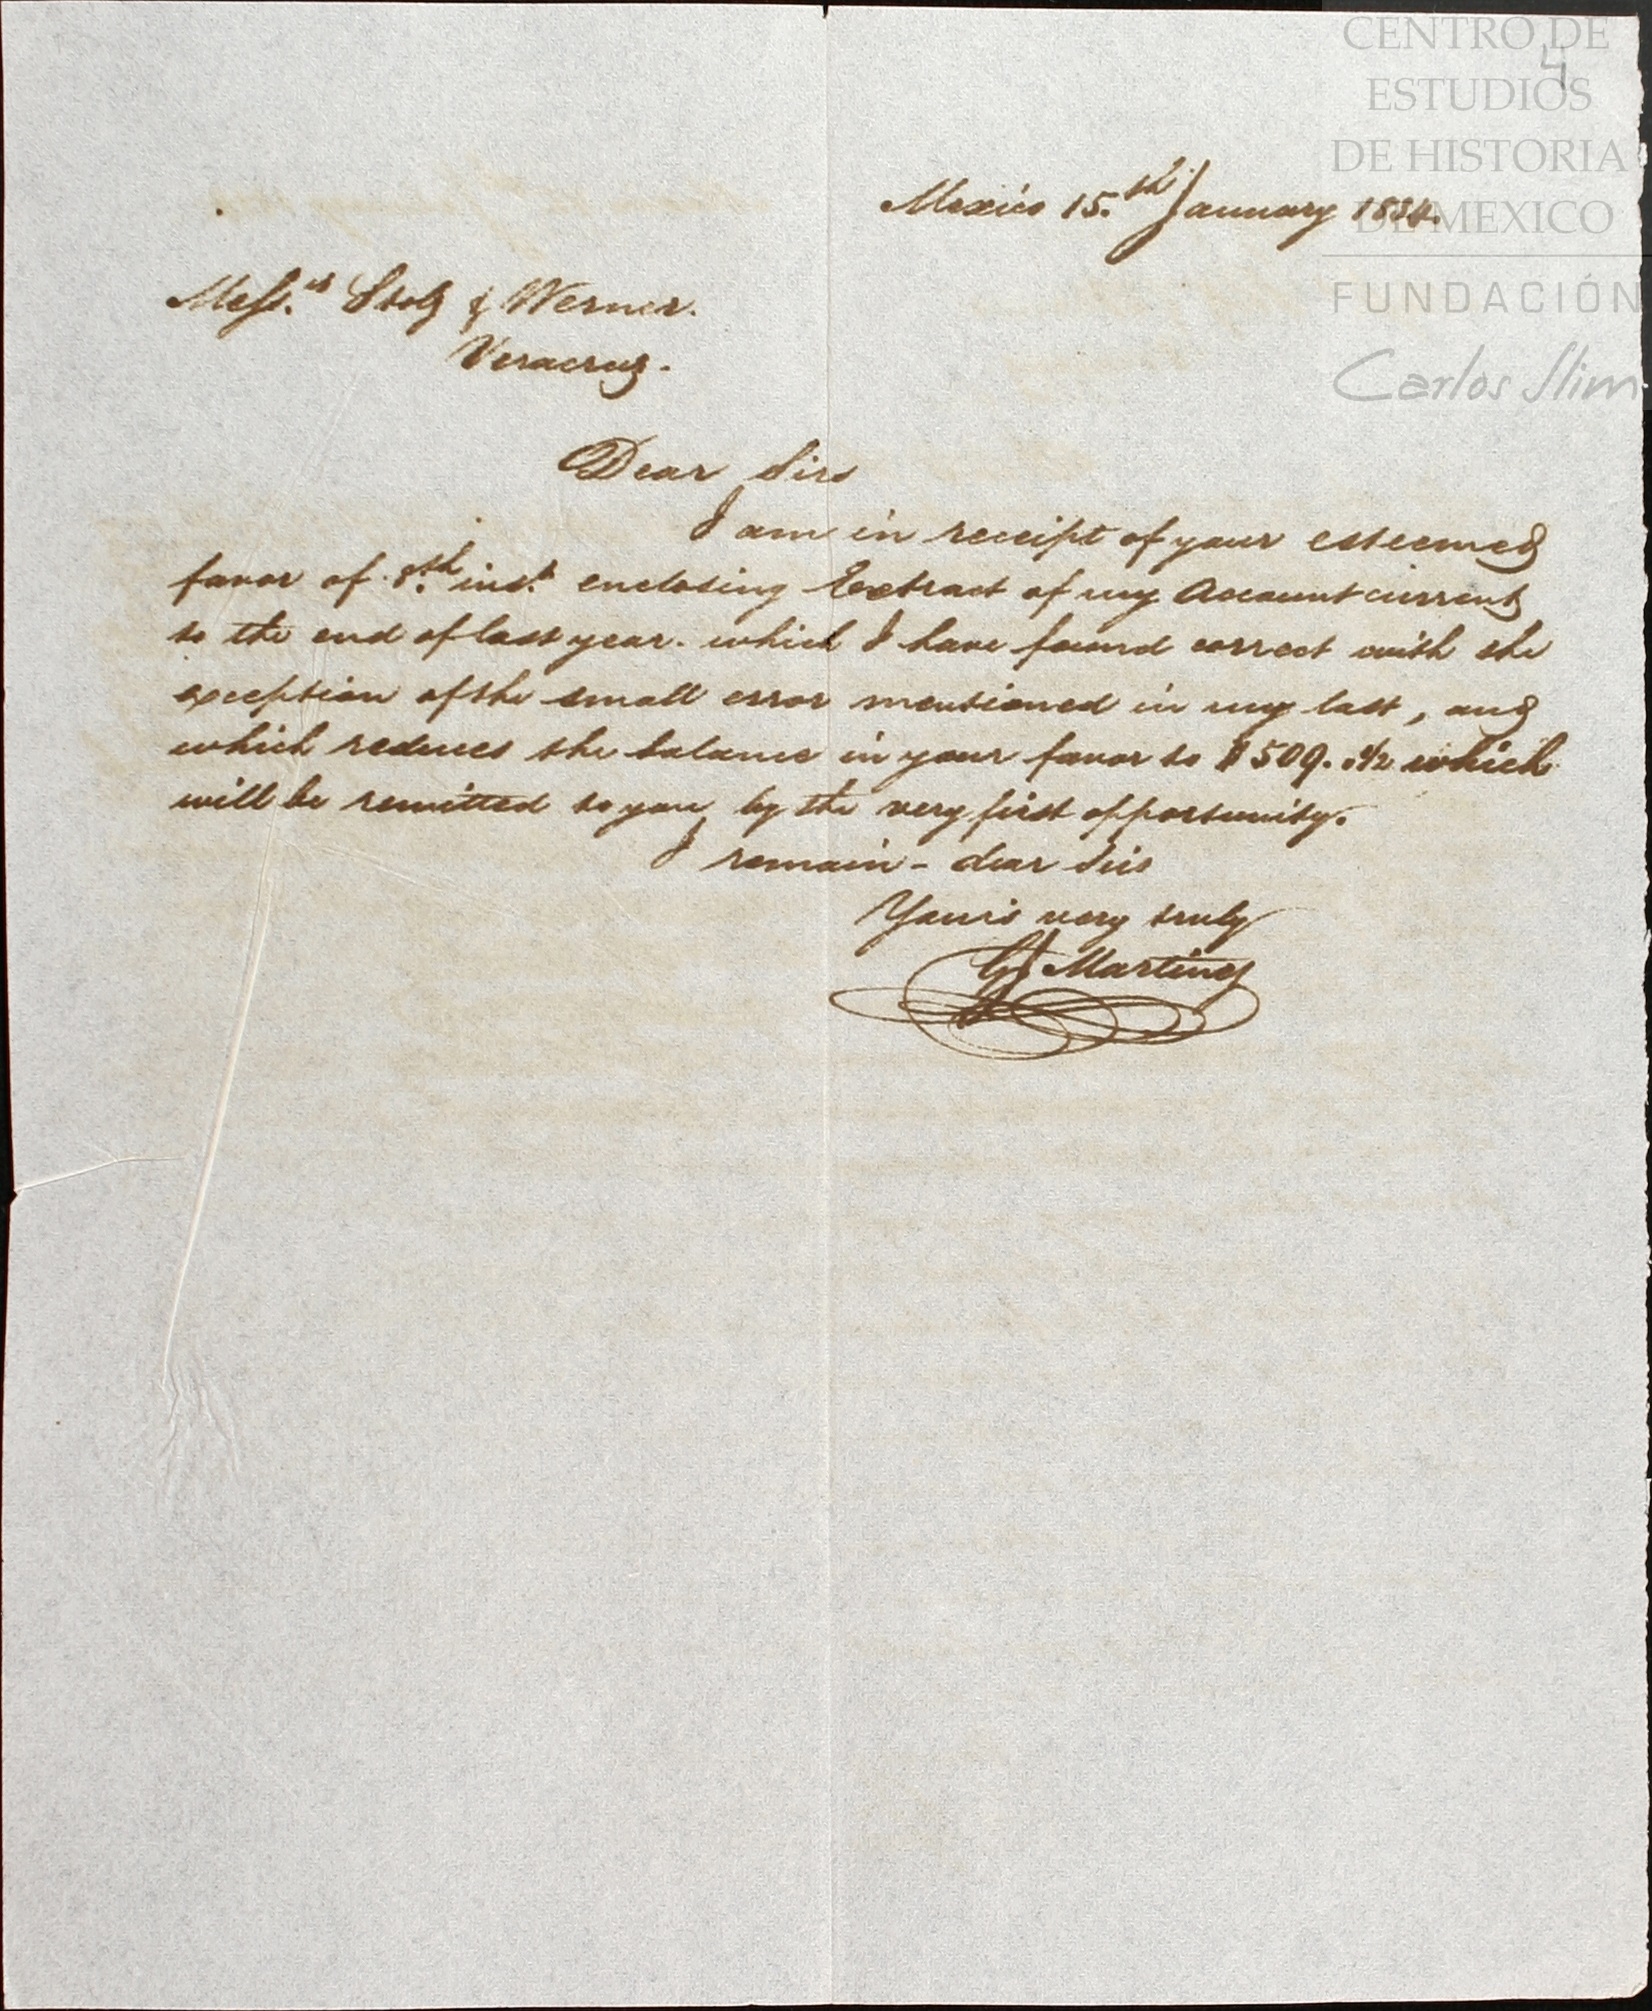 CENTRO DE
ESTUDIOS
DE HISTORIA
DE MEXICO
FUNDACIÓN
Carlos Slim
4
Mexico 15.th January
Mess.rs Stolz & Werner.
Veracruz.
Dear Sirs
I am in receipt of your esteemed
favor of 8.th inst. enclosing Extract of my Account current
to the end of last year. which I have found correct with the
exception of the small error mentioned in my last, and
which reduces the balance in your favor to $509. which
will be remitted to you by the very first opportunity.
I remain - dear Sirs
Yours very truly
Martinez